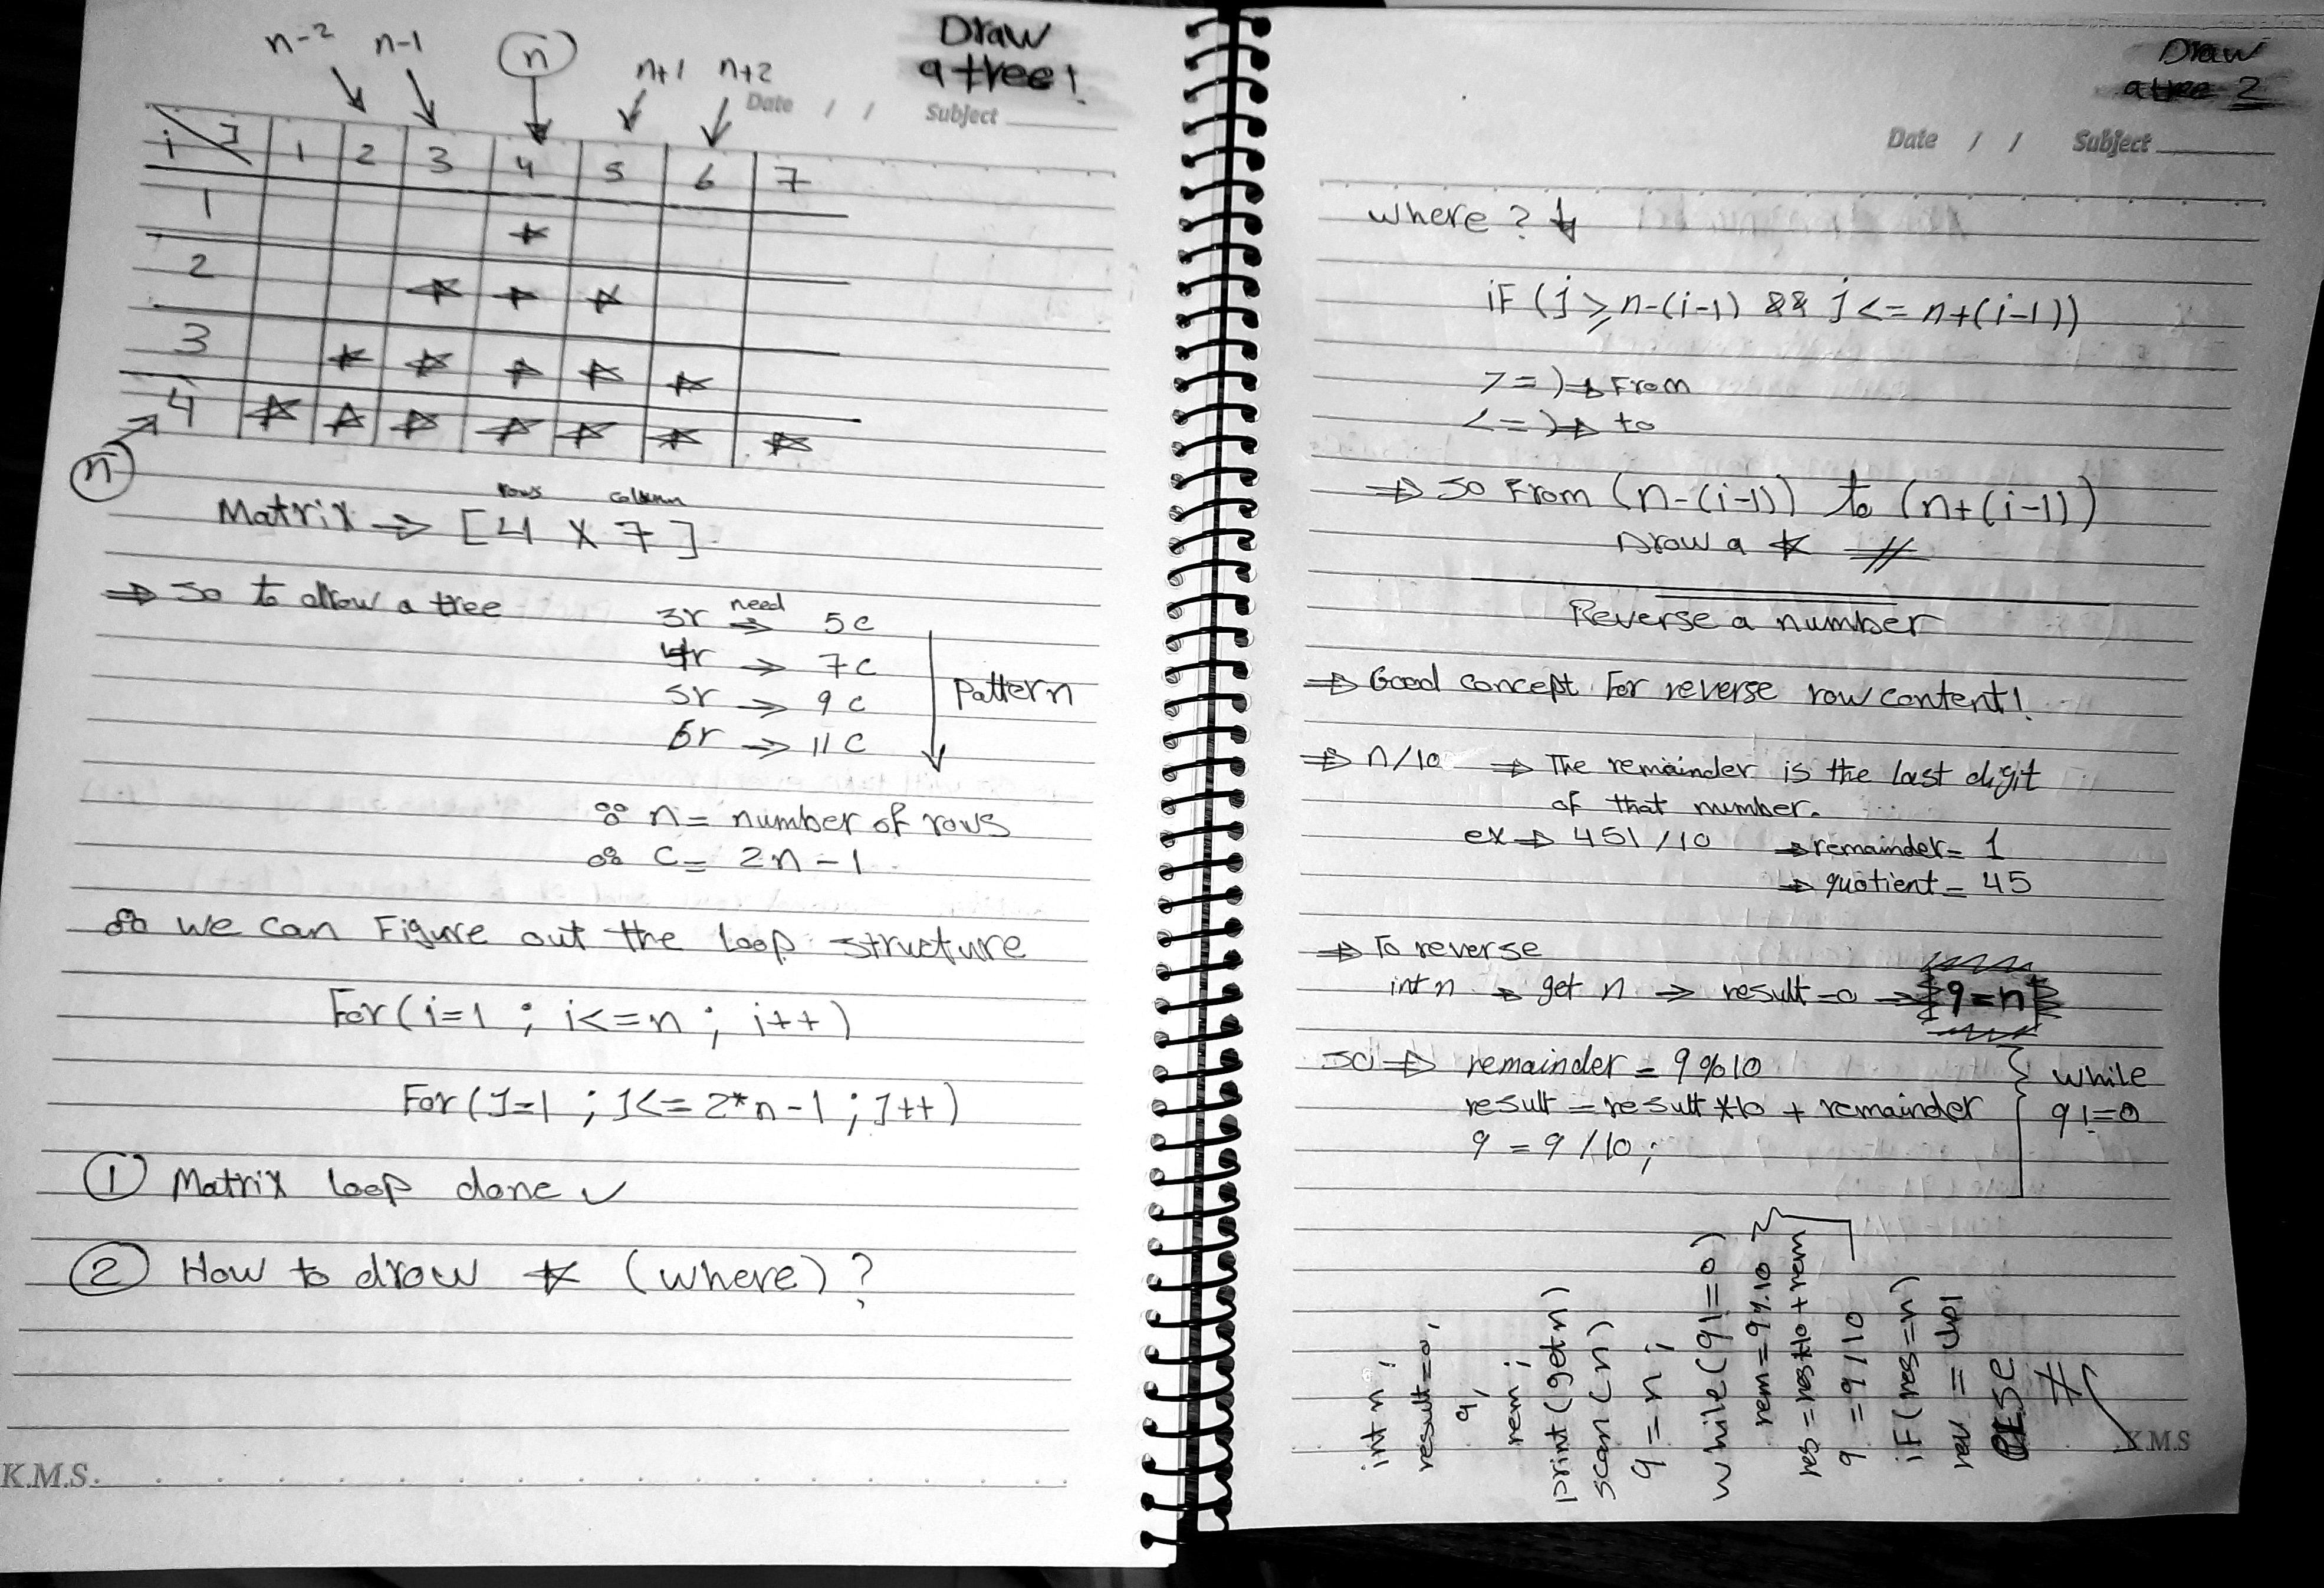 Draw
a tree!
n-2 n-1 n n+1 n+2
Date / / Subject
i J 1 2 3 4 5 6 7
1 *
2 * * *
3 * * * * *
4 * * * * * * *
n
rows column
Matrix ⇒ [4 X 7]
⇒ so to draw a tree
3r need ⇒ 5c
4r ⇒ 7c
5r ⇒ 9c
6r ⇒ 11c
Pattern
∵ n = number of rows
∴ c = 2n-1
∴ we can Figure out the loop structure
For (i=1 ; i<=n ; i++)
For (J=1 ; J<= 2*n-1 ; J++)
① Matrix loop done ✓
② How to draw * (where)?
K.M.S.
Draw
a tree 2
Date / / Subject
where? ↓
iF (j ⩾ n-(i-1) && j <= n+(i-1))
>= ) ⇒ From
<= ) ⇒ to
⇒ so From (n-(i-1)) to (n+(i-1))
Draw a * //
Reverse a number
⇒ Good concept For reverse row content!
⇒ n/10 ⇒ The remainder is the last digit
of that number.
ex ⇒ 451/10 ⇒ remainder = 1
⇒ quotient = 45
⇒ To reverse
int n → get n → result=0 → q=n
so ⇒ remainder = q%10
result = result*10 + remainder
q = q/10;
while
q!=0
int n;
result=0,
q,
rem;
print(get n)
scan(n)
q = n;
while(q!=0)
rem=q%10
res=res*10+rem
q = q/10
iF(res=n)
rev =
else
K.M.S